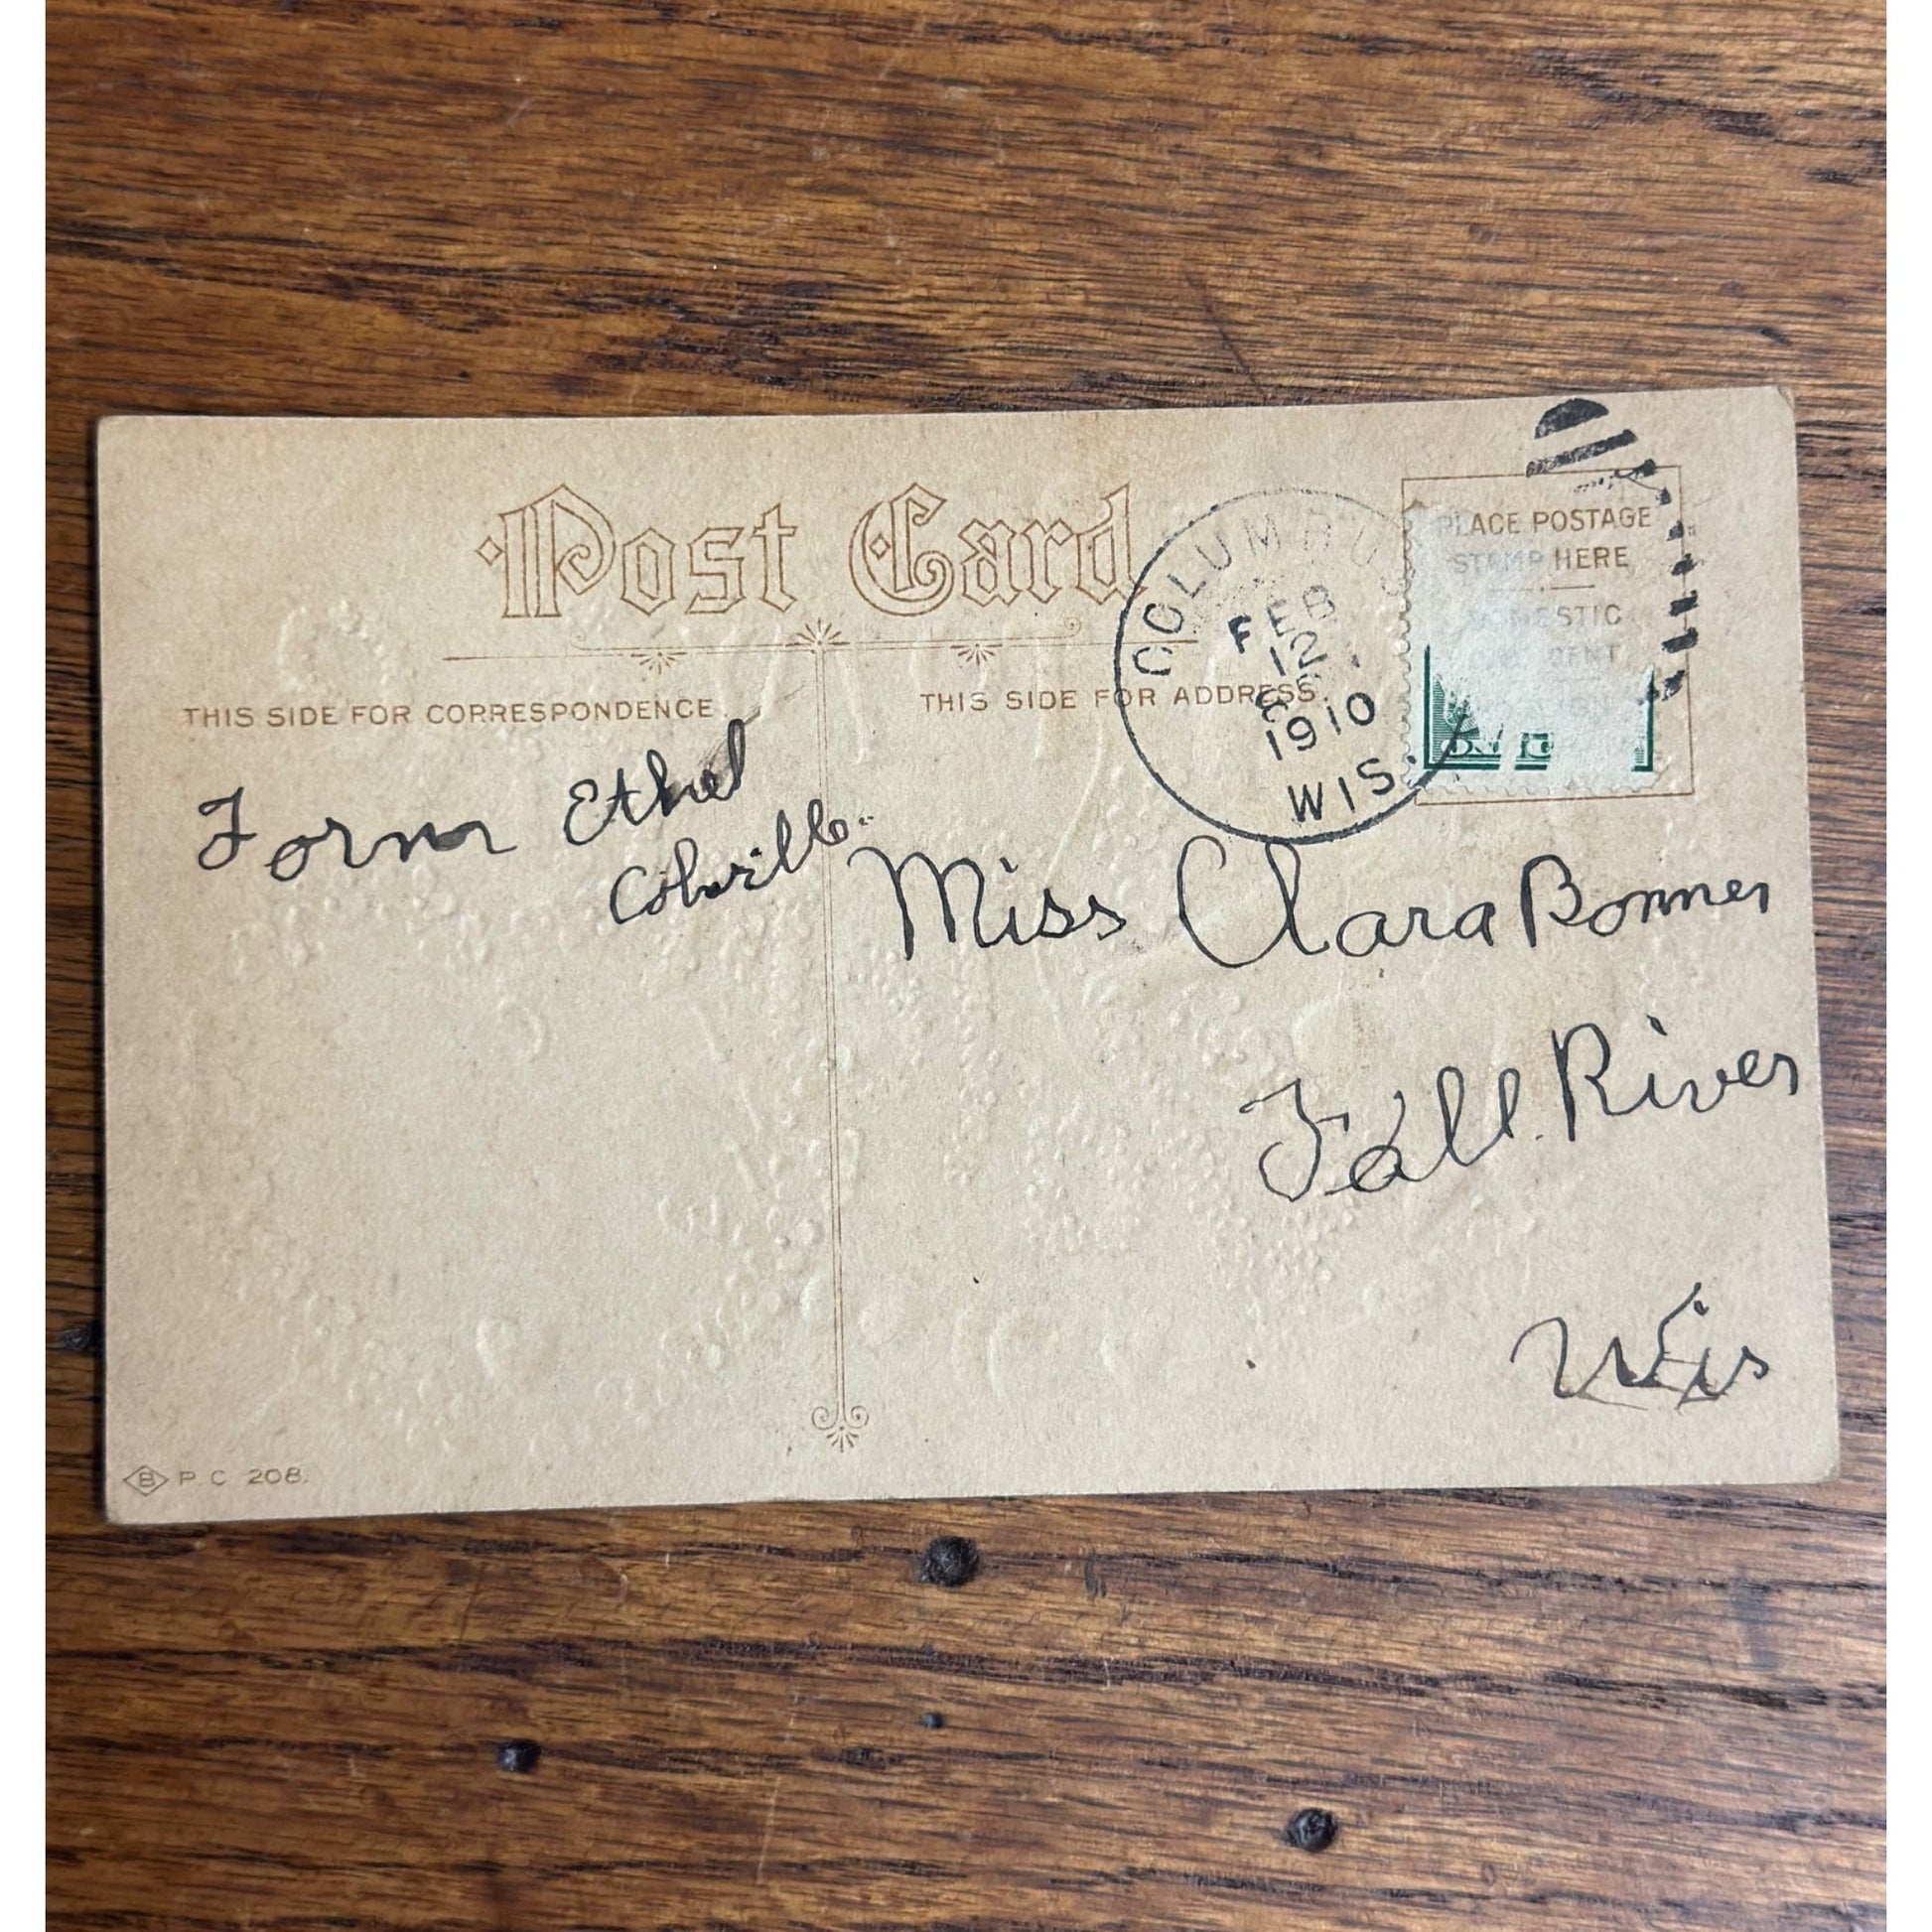 Post Card
THIS SIDE FOR CORRESPONDENCE
THIS SIDE FOR ADDRESS
COLUMBUS
FEB
12
1910
WIS.
PLACE POSTAGE
STAMP HERE
DOMESTIC
ONE CENT
Form Ethel
Miss Clara Bonner
Fall River
Wis
B P.C 208.